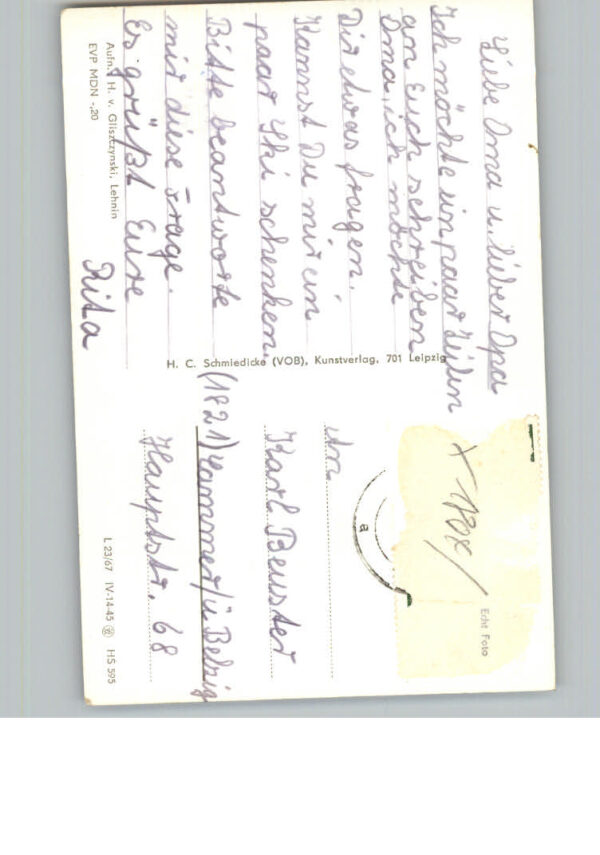 Liebe Oma u. lieber Opa
Ich möchte ein paar Zeilen
an Euch schreiben
Oma, ich möchte
Dir etwas fragen.
Kannst Du mir ein
paar Ski schenken.
Bitte beantworte
mir diese Frage.
Es grüßt Eure
Rita
Aufn.: H. v. Gliszczynski, Lehnin
EVP MDN -,20
H. C. Schmiedicke (VOB), Kunstverlag, 701 Leipzig
Echt Foto
a
An
Karl Beuster
(1821) Lammer/ü Belzig
Hauptstr. 68
L 23/67 IV-14-45 HS 595